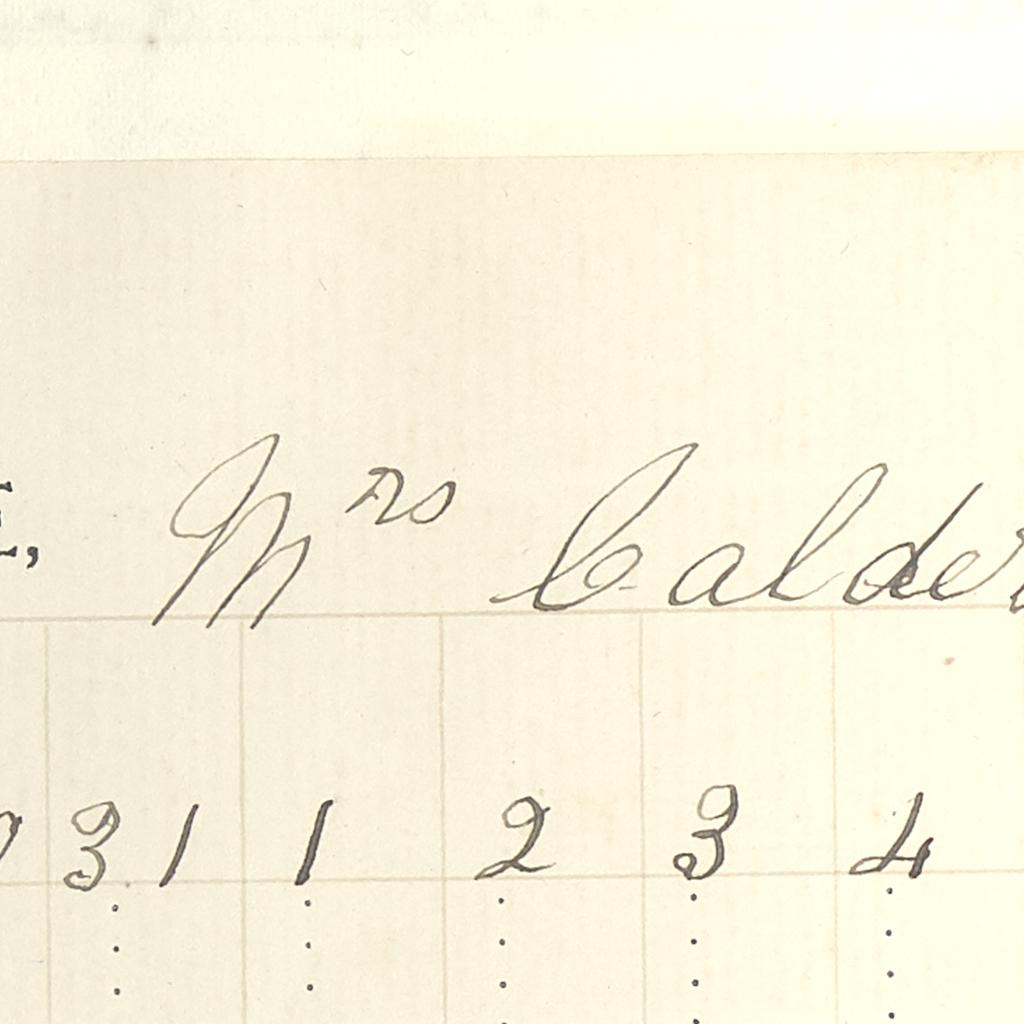 Mrs Calder
31 1 2 3 4